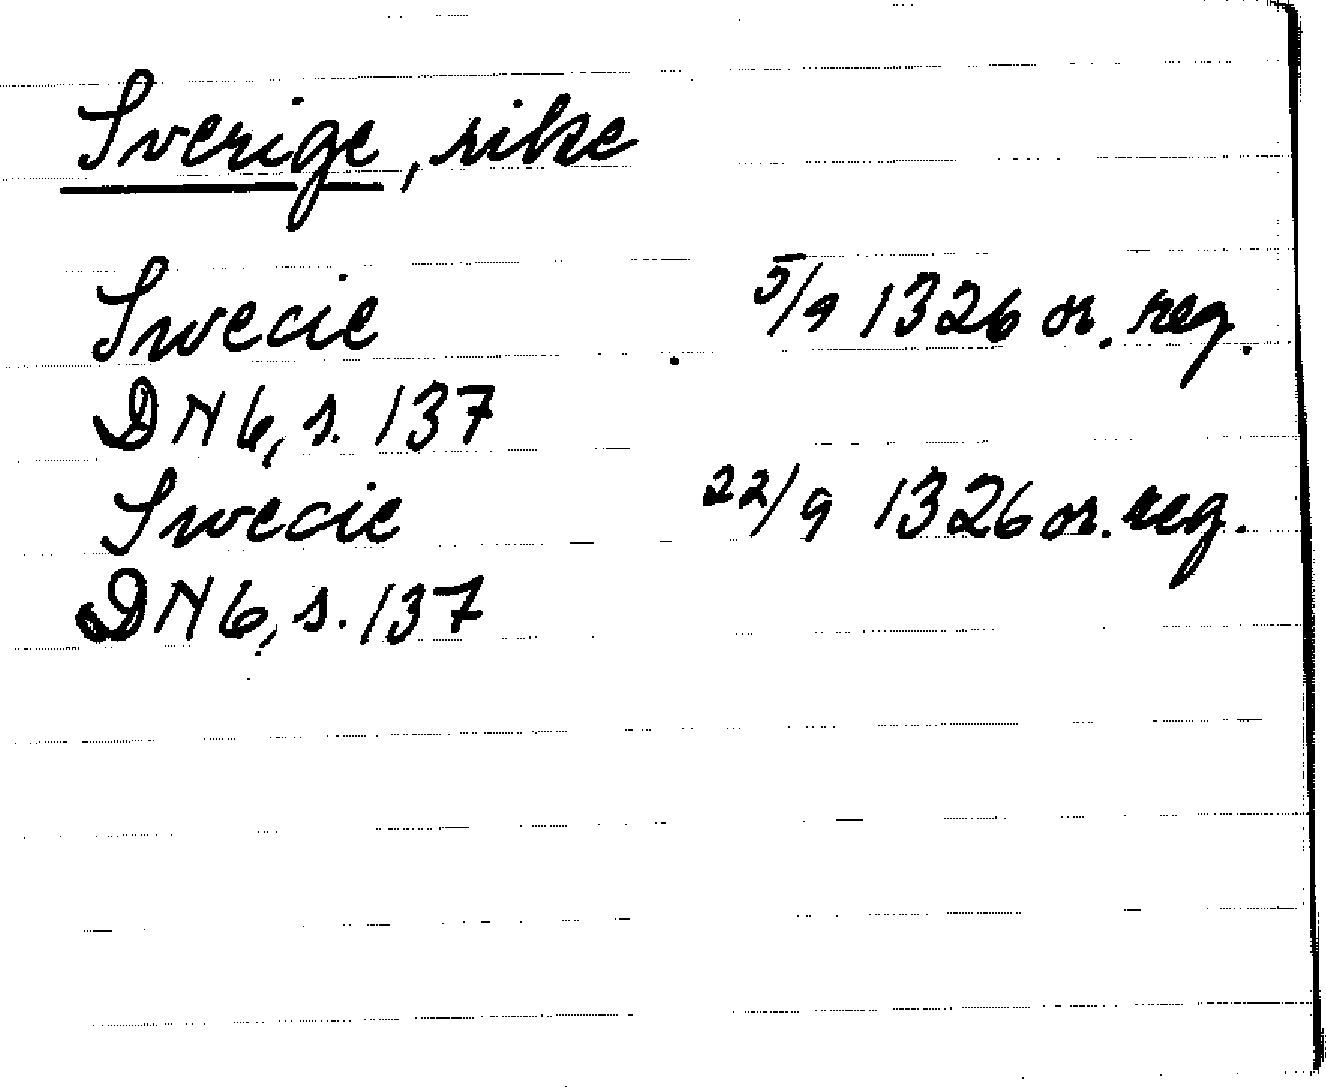 Sverige, rike
Swecie 5/9 1326 or. reg.
DN 6, s. 137
Swecie 22/9 1326 or. reg.
DN 6, s. 137